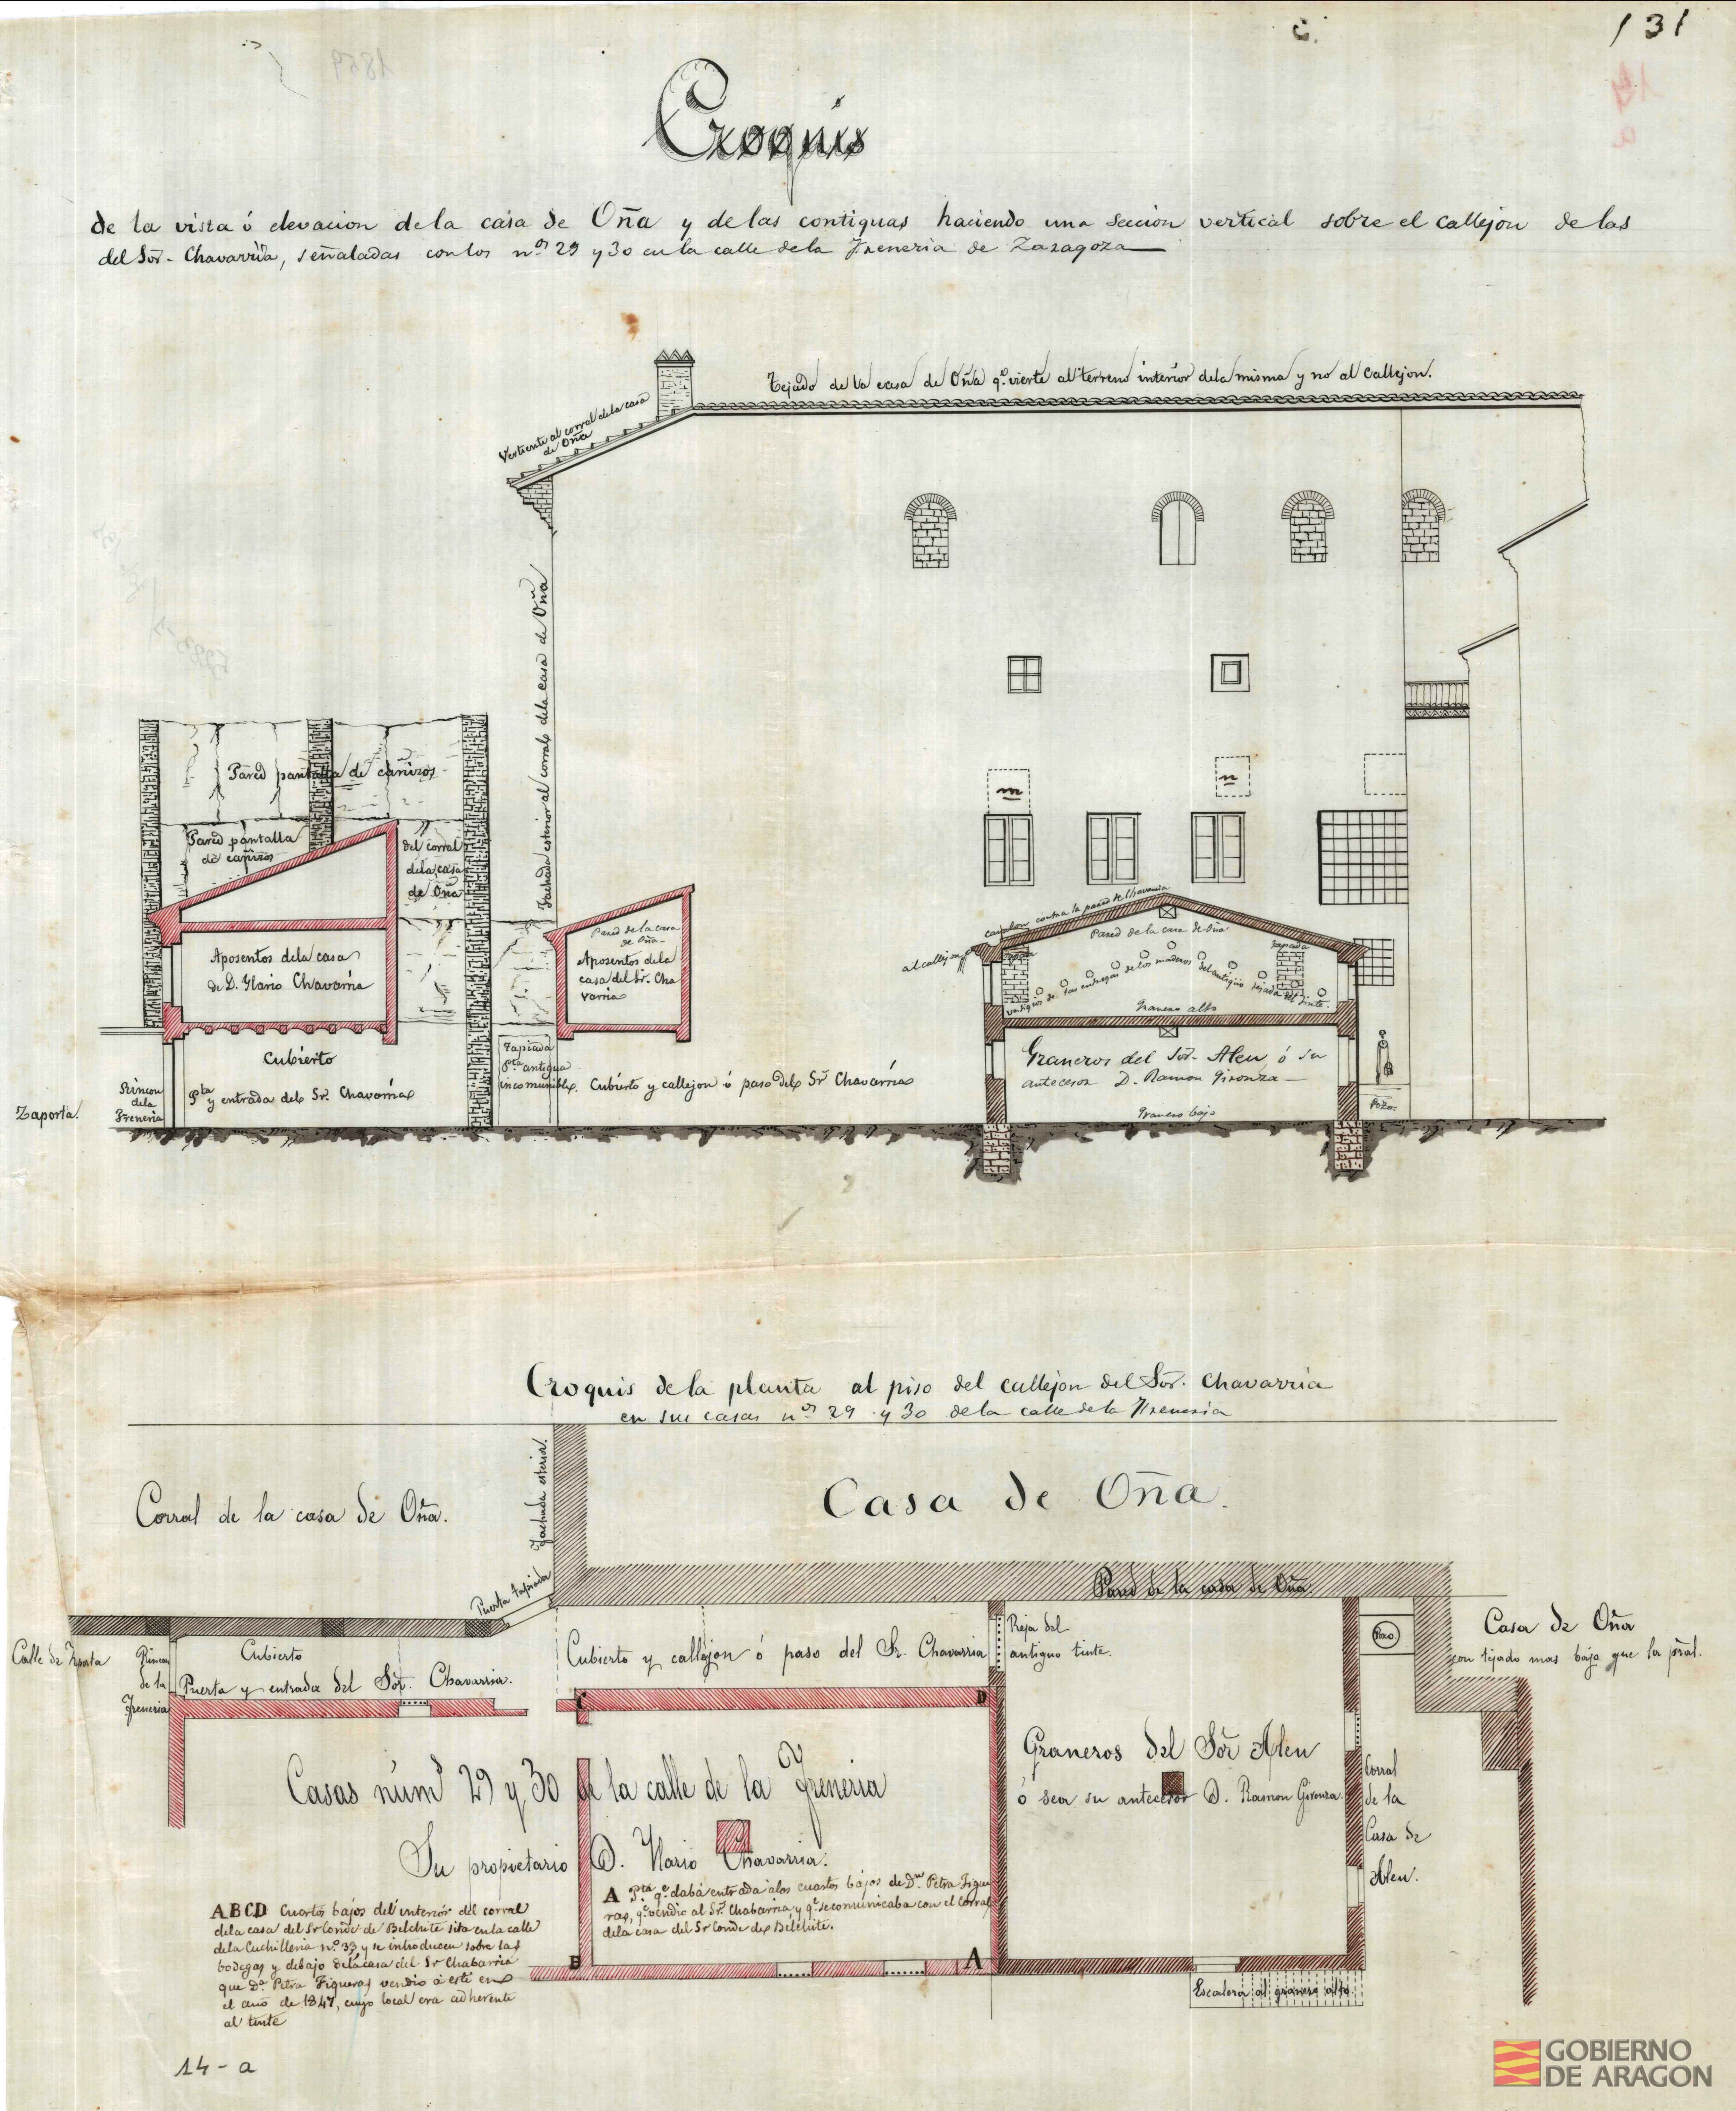 131
14
a
1859
Croquis
de la vista ó elevacion de la casa de Oña y de las contiguas haciendo una seccion vertical sobre el callejon de las
del Sor. Chavarria, señaladas con los nos 29 y 30 en la calle de la Freneria de Zaragoza
Tejado de la casa de Oña qe. vierte al terreno interior dela misma y no al callejon.
Vertiente al corral dela casa
de Oña
Fachada esterior al corral dela casa de Oña
Pared pantalla de cañizos
Pared pantalla
de cañizos
del corral
dela casa
de Oña
Aposentos dela casa
de D. Ylario Chavarria
Cubierto
Pta y entrada del Sr. Chavarria
Rincon
dela
Freneria
Zaporta.
Pared de la casa
de Oña
Aposentos dela
casa del Sr. Cha
varria
Tapiada
Pta antigua
incomunible.
Cubierto y callejon ó paso del Sr Chavarria
m
n
contra la pared de Chavarria
al callejon
Pared de la casa de Oña
tapiada
vestigios de las entregas de los maderos del antiguo tejado del tinte.
Granero alto
Graneros del Sor. Aleu ó su
antecesor D. Ramon Gironza
Granero bajo
Pozo.
Croquis dela planta al piso del callejon del Sor. Chavarria
en sus casas nos 29 y 30 de la calle de la Freneria
Corral de la casa de Oña.
Fachada esterior.
Casa de Oña.
Puerta tapiada
Pared de la casa de Oña.
Calle de Zaporta
Rincon
de la
Freneria
Cubierto
Puerta y entrada del Sor. Chavarria.
Cubierto y callejon ó paso del Sr. Chavarria
Reja del
antiguo tinte.
Pozo.
Casa de Oña
con tejado mas bajo que la pral.
C
D
Casas núms 29 y 30 de la calle de la Freneria
Su propietario D. Ylario Chavarria.
Graneros del Sor Aleu
ó sea su antecesor D. Ramon Gironza.
Corral
de la
Casa de
Aleu.
A B C D Cuartos bajos del interior del corral
dela casa del Sr Conde de Belchite sita en la calle
dela Cuchilleria no. 33 y se introducen sobre las
bodegas y debajo dela casa del Sr Chabarria
que Da. Petra Figueras vendio á este en
el año de 1847, cuyo local era adherente
al tinte
A Pta qe. daba entrada alos cuartos bajos de Da. Petra Figue
ras, qe. vendio al Sr. Chabarria y qe. se comunicaba con el corral
dela casa del Sr Conde de Belchite.
B
A
Escalera al granero alto
14-a
GOBIERNO
DE ARAGON